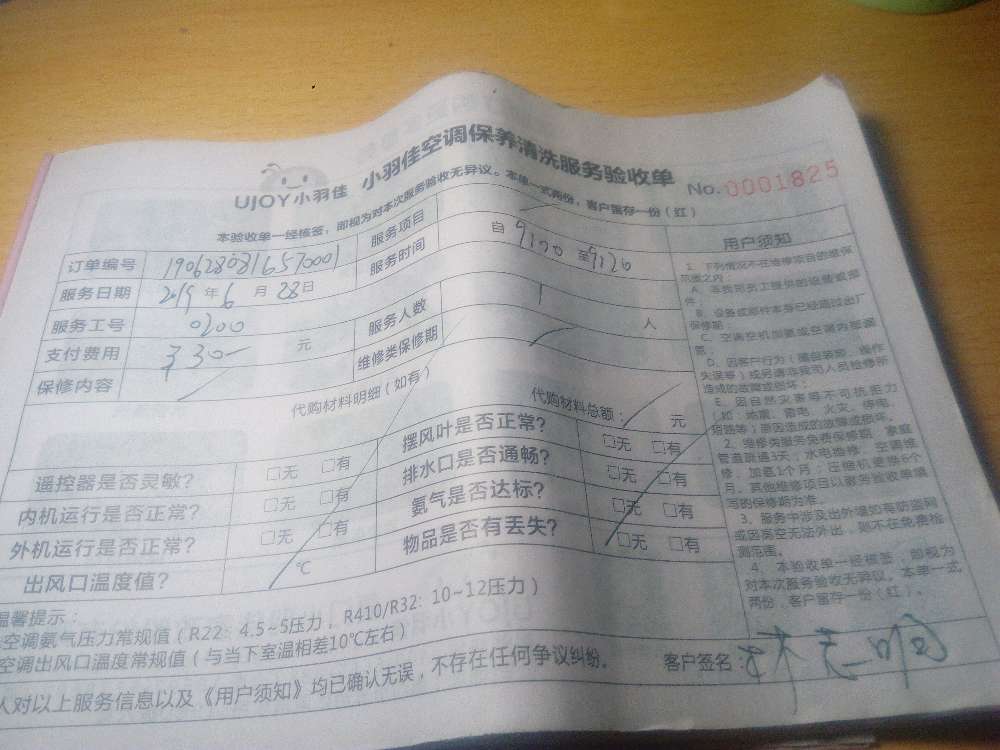 UJOY小羽佳 小羽佳空调保养清洗服务验收单 No.0001825
本验收单一经核签，即视为对本次服务验收无异议。本单一式两份，客户留存一份（红）
订单编号 1906280816570001 服务项目
服务日期 2019 年 6 月 28 日 服务时间 自 9:00 至 9:20
服务工号 0200 服务人数 1 人
支付费用 元 维修类保修期
保修内容
代购材料明细（如有） 代购材料总额： 元
遥控器是否灵敏？ □无 □有 摆风叶是否正常？ □无 □有
内机运行是否正常？ □无 □有 排水口是否通畅？ □无 □有
外机运行是否正常？ □无 □有 氨气是否达标？ □无 □有
出风口温度值？ ℃ 物品是否有丢失？ □无 □有
温馨提示：
空调氨气压力常规值（R22：4.5~5压力，R410/R32：10~12压力）
空调出风口温度常规值（与当下室温相差10℃左右）
人对以上服务信息以及《用户须知》均已确认无误，不存在任何争议纠纷。 客户签名：
用户须知
1、下列情况不在维修项目的维保
范围之内：
A、非我司员工提供的设备或部
件；
B、设备或部件本身已经超过出厂
保修期；
C、空调空机加氨或空调内部漏
氨；
D、因客户行为（擅自装卸、操作
失误等）或另请非我司人员检修所
造成的故障或损坏；
E、因自然灾害等不可抗拒力
（如：地震、雷电、火灾、停电、
短路等）原因造成的故障或损坏。
2、维修类服务免费保修期：家庭
管道疏通3天；水电维修、空调维
修、加氨1个月；压缩机更换6个
月，其他维修项目以服务验收单填
写的保修期为准。
3、服务中涉及出外墙如有防盗网
或因高空无法外出，则不在免费检
测范围。
4、本验收单一经核签，即视为
对本次服务验收无异议。本单一式
两份，客户留存一份（红）。